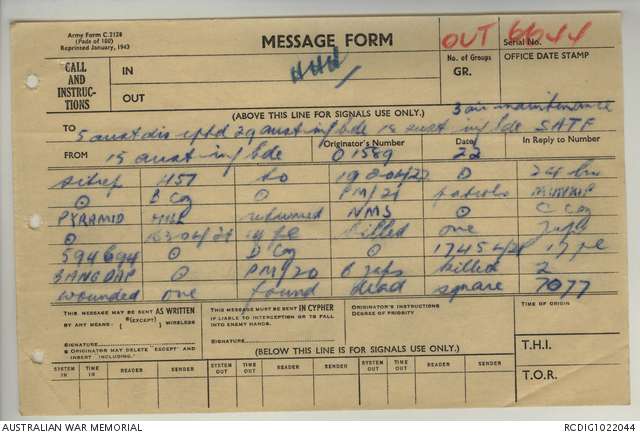 Army Form C.2128
(Pads of 100)
Reprinted January, 1943
MESSAGE FORM
OUT 6644
Serial No.
No. of Groups
GR.
OFFICE DATE STAMP
CALL
AND
INSTRUC-
TIONS
IN
OUT
(ABOVE THIS LINE FOR SIGNALS USE ONLY.)
3 air maintenance
TO 5 aust div rptd 29 aust inf bde 18 aust inf bde SATF
FROM 15 aust inf bde
Originator's Number
01589
Date
22
In Reply to Number
sitrep 457 to 24 hrs
B Coy PM/21 patrols
PYRAMID returned NMS C Coy
14 pl killed one Japs
594694 D Coy 17 pl
PM/20 8 Japs killed 2
wounded one found dead square 7077
THIS MESSAGE MAY BE SENT AS WRITTEN
BY ANY MEANS. (EXCEPT) WIRELESS
SIGNATURE
ORIGINATOR MAY DELETE "EXCEPT" AND
INSERT "INCLUDING."
THIS MESSAGE MUST BE SENT IN CYPHER
IF LIABLE TO INTERCEPTION OR TO FALL
INTO ENEMY HANDS.
SIGNATURE
ORIGINATOR'S INSTRUCTIONS
DEGREE OF PRIORITY
TIME OF ORIGIN
(BELOW THIS LINE IS FOR SIGNALS USE ONLY.)
T.H.I.
T.O.R.
SYSTEM IN TIME IN READER SENDER SYSTEM OUT TIME OUT READER SENDER SYSTEM OUT TIME OUT READER SENDER
AUSTRALIAN WAR MEMORIAL
RCDIG1022044